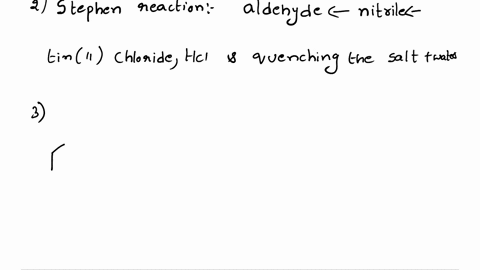 2) Stephen reaction:- aldehyde ← nitrile ←
tin(11) Chloride, Hcl is quenching the salt + water
3)